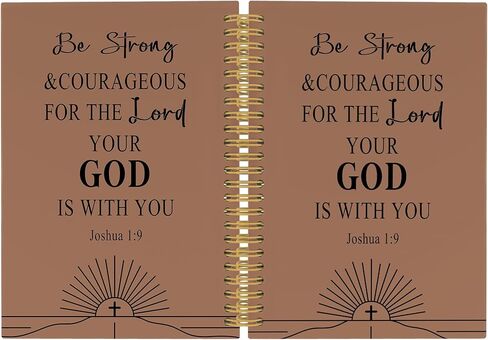 Be Strong
&COURAGEOUS
FOR THE Lord
YOUR
GOD
IS WITH YOU
Joshua 1:9
Be Strong
&COURAGEOUS
FOR THE Lord
YOUR
GOD
IS WITH YOU
Joshua 1:9